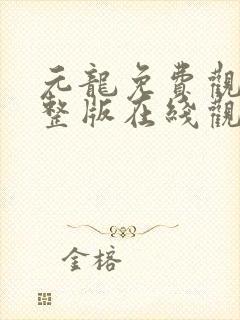 元龍免費觀
整版在綫觀
金榕